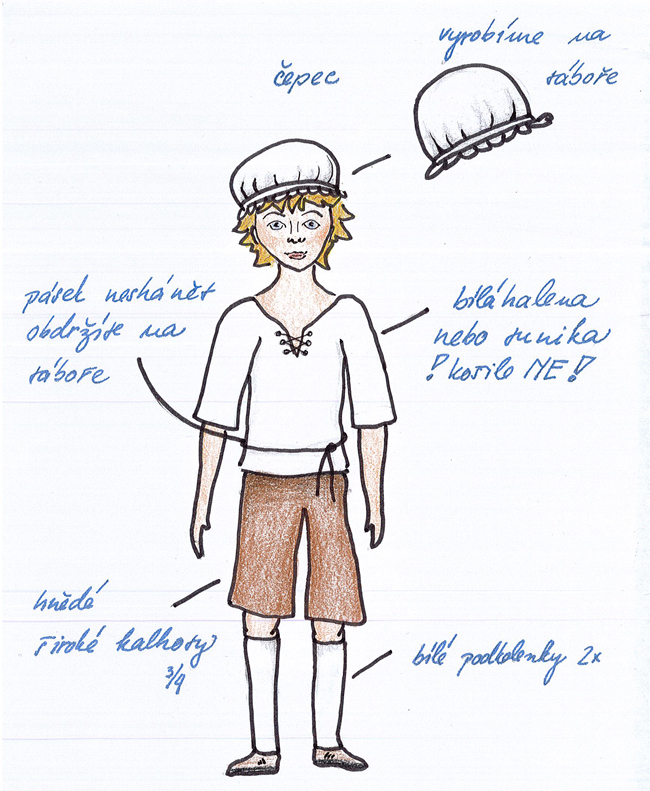 vyrobíme na
táboře
čepec
pásek neshánět
obdržíte na
táboře
bílá halena
nebo tunika
! košile NE !
hnědé
široké kalhoty
3/4
bílé podkolenky 2x